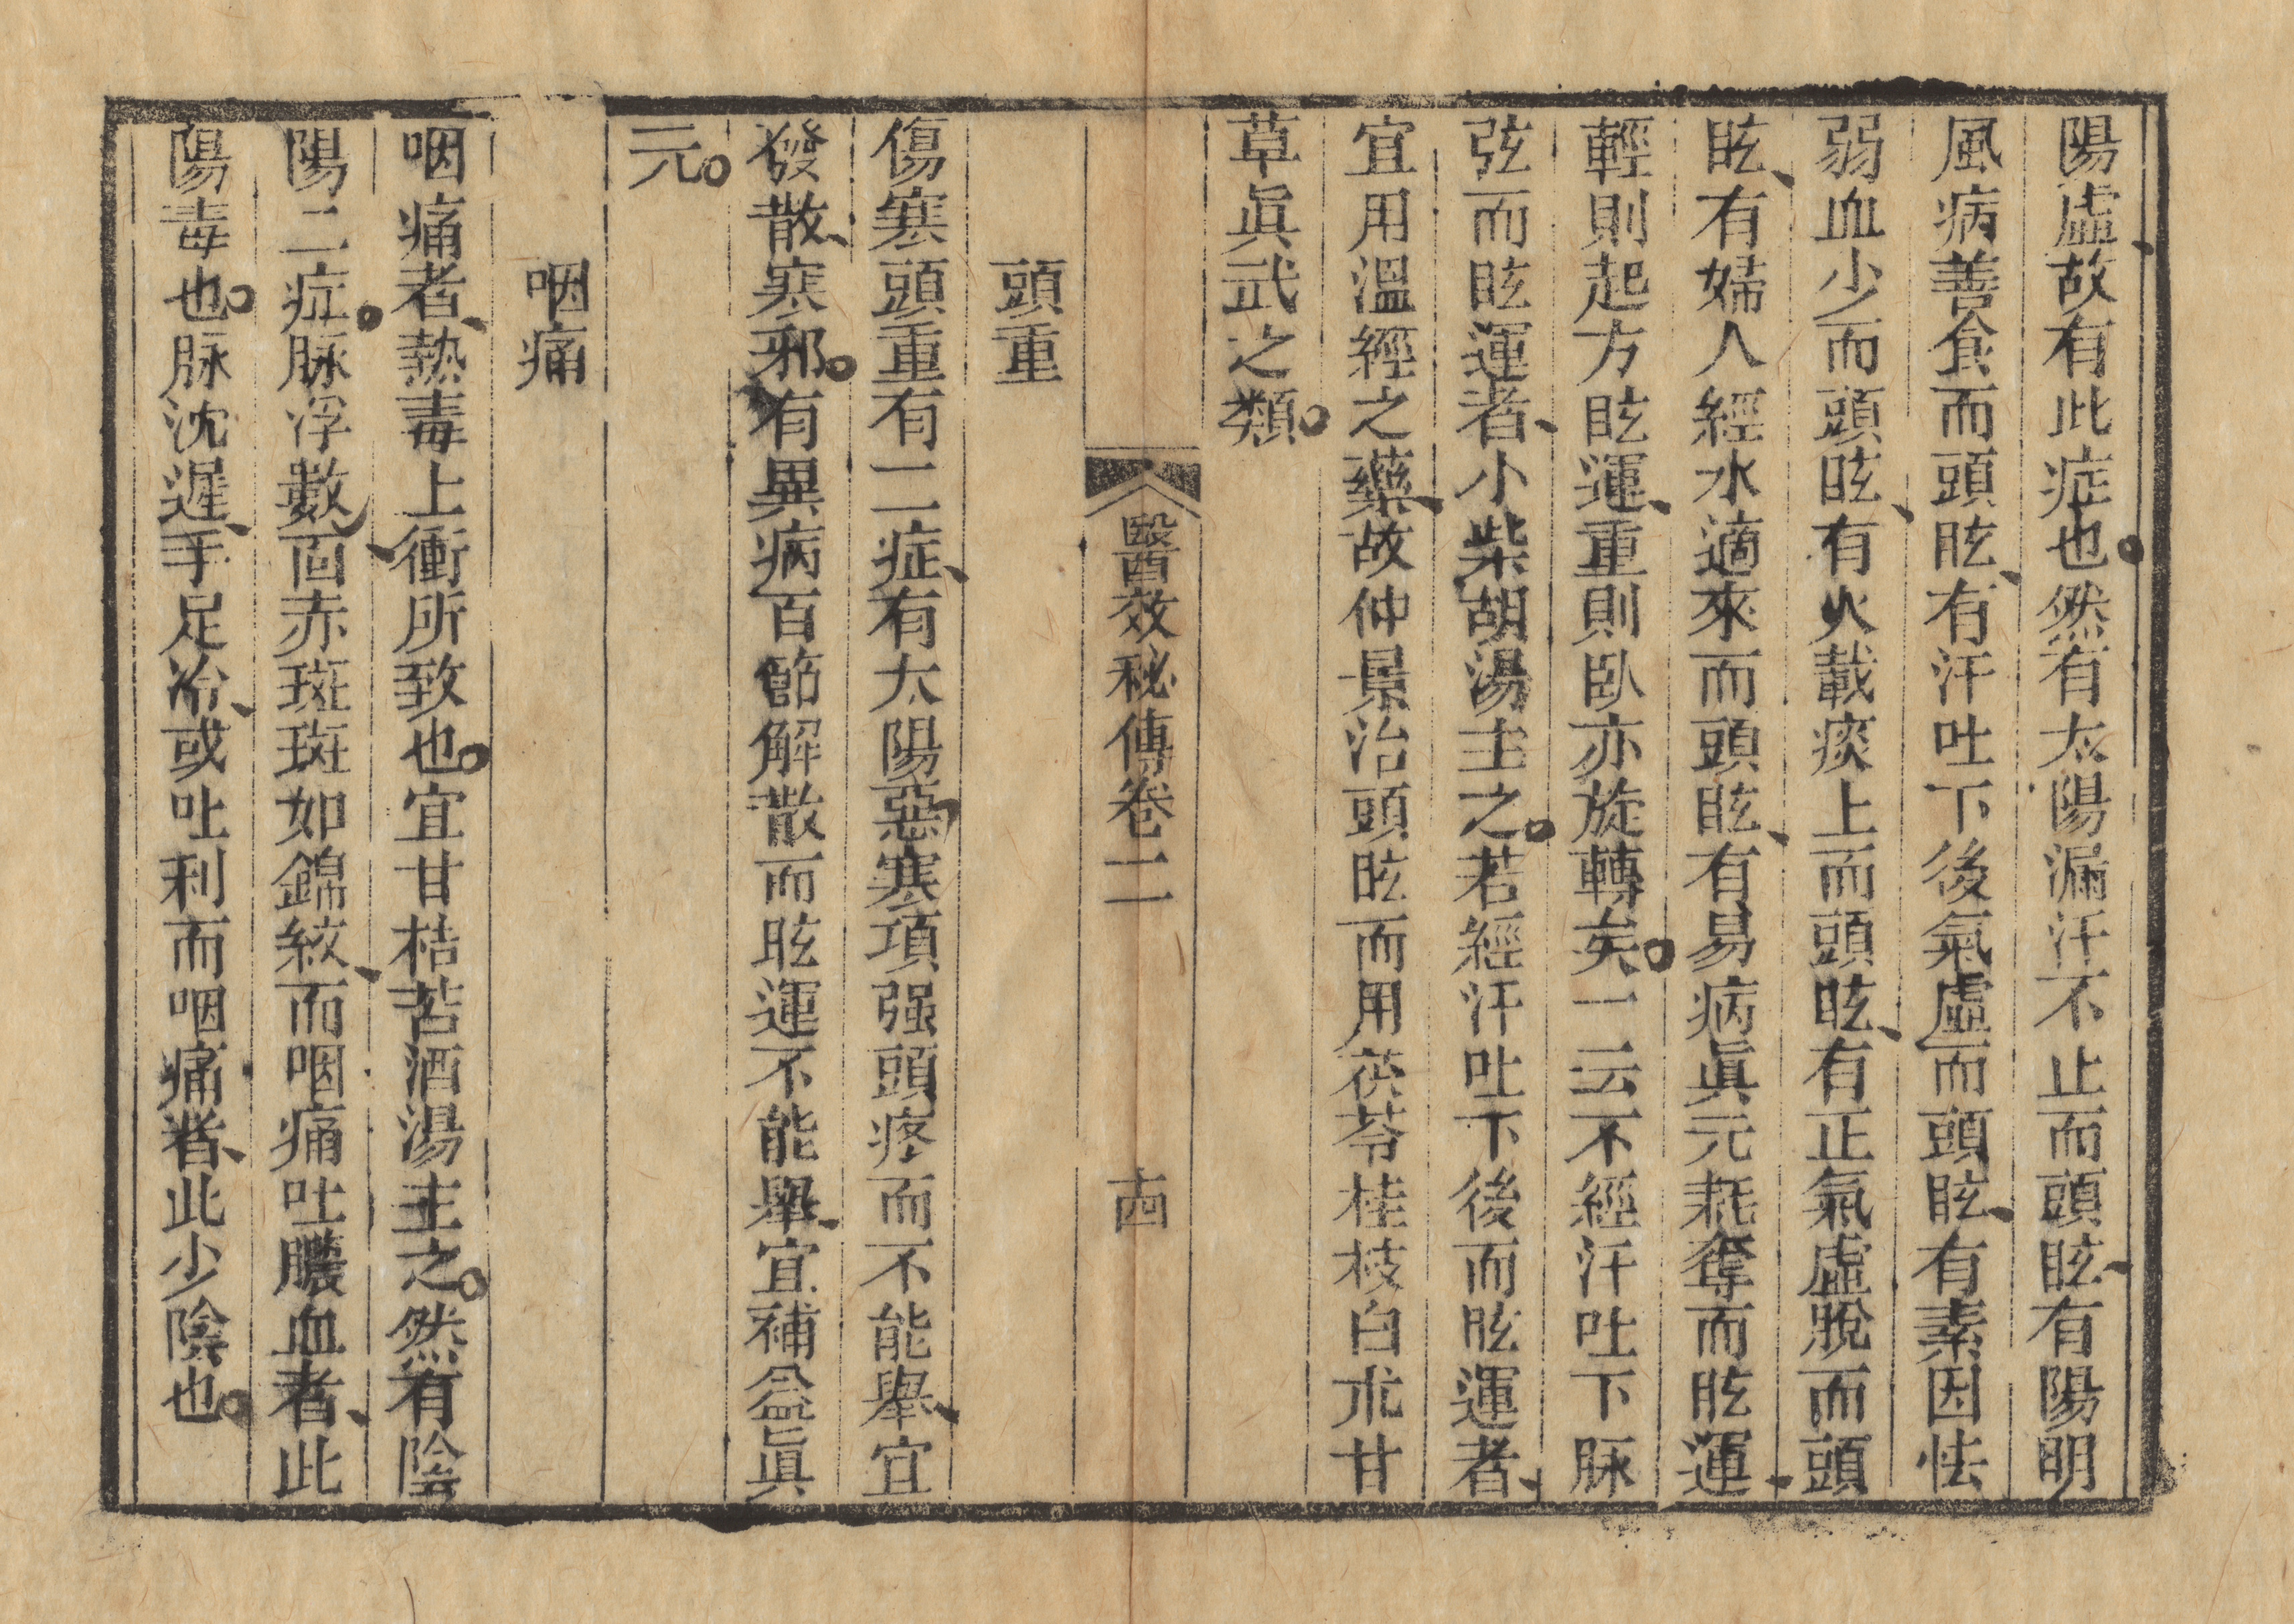 陽虛、故有此症也。然有太陽漏汗不止而頭眩、有陽明
風病善食而頭眩、有汗吐下後氣虛而頭眩、有素因怯
弱血少而頭眩、有火載痰上而頭眩、有正氣虛脫而頭
眩、有婦人經水適來而頭眩、有易病眞元耗奪而眩運、
輕則起方眩運、重則臥亦旋轉矣。一云不經汗吐下脉
弦而眩運者、小柴胡湯主之。若經汗吐下後而眩運者、
宜用溫經之藥、故仲景治頭眩而用茯苓桂枝白朮甘
草眞武之類。
醫效秘傳卷二 十四
頭重
傷寒頭重有二症、有太陽惡寒項强頭疼而不能舉、宜
發散、寒邪。有異病百節解散而眩運不能舉、宜補益眞
元。
咽痛
咽痛者、熱毒上衝所致也。宜甘桔苦酒湯主之。然有陰
陽二症。脉浮數、面赤斑斑如錦紋、而咽痛吐膿血者、此
陽毒也。脉沈遲、手足冷、或吐利而咽痛者、此少陰也。